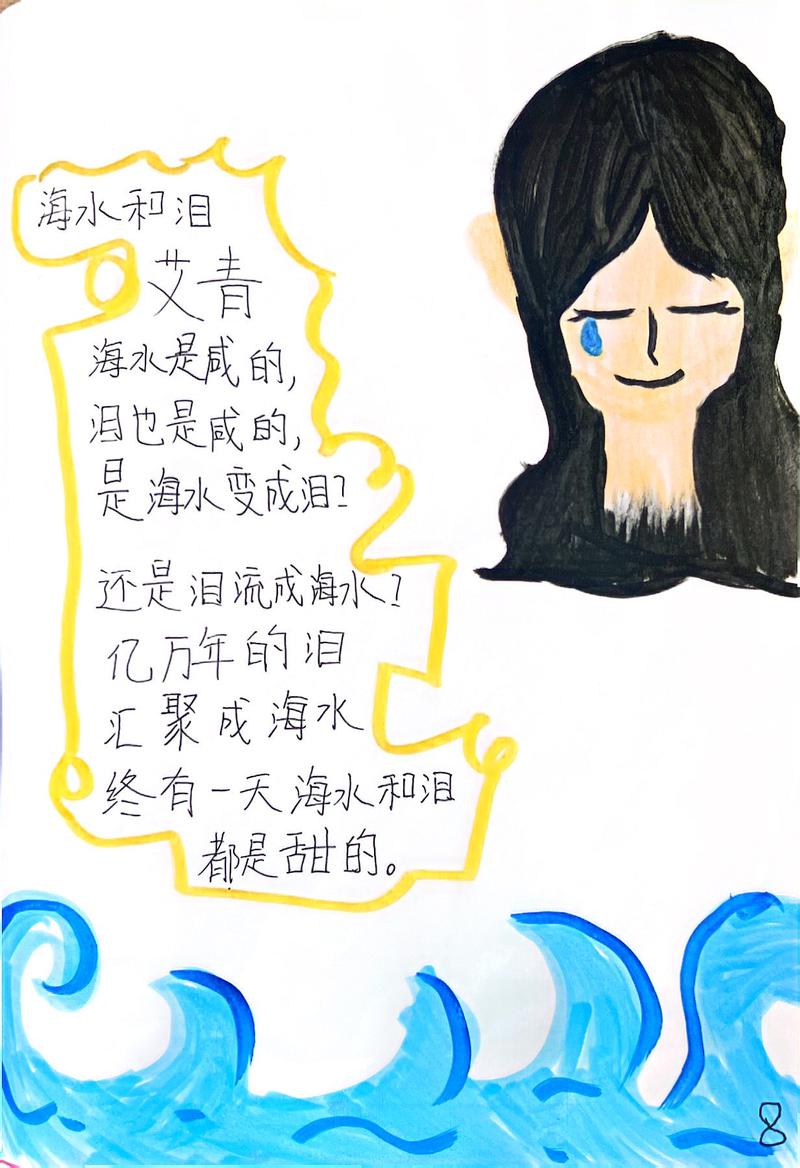 海水和泪
艾青
海水是咸的,
泪也是咸的,
是海水变成泪?
还是泪流成海水?
亿万年的泪
汇聚成海水
终有一天海水和泪
都是甜的。
8